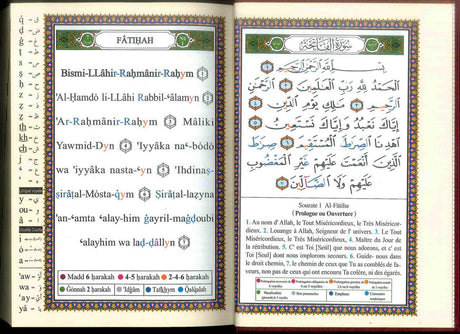 FÂTIḤAH
Bismi-LLâhir-Raḥmânir-Raḥym 1
'Al-Ḥamdô li-LLahi Rabbil-ʿâlamyn 2
'Ar-Raḥmânir-Raḥym 3 Mâliki
Yawmid-Dyn 4 'iyyâka naʿ-bôdô
wa 'iyyâka nasta-ʿyn 5 'Ihdinaṣ-
ṣirâṭal-Môsta-qym 6 Ṣirâṭal-lazyna
'an-ʿamta ʿalay-him ġayril-maġdoubi
ʿalayhim wa laḍ-ḍâllyn 7
Madd 6 ḥarakah 4-5 ḥarakah 2-4-6 ḥarakah
Ġonnah 2 ḥarakah 'Idġâm Tafkhym Qalqalah
سُورَةُ الْفَاتِحَةِ
بِسْمِ اللَّهِ الرَّحْمَٰنِ الرَّحِيمِ ١
الْحَمْدُ لِلَّهِ رَبِّ الْعَالَمِينَ ٢ الرَّحْمَٰنِ
الرَّحِيمِ ٣ مَالِكِ يَوْمِ الدِّينِ ٤
إِيَّاكَ نَعْبُدُ وَإِيَّاكَ نَسْتَعِينُ ٥
اهْدِنَا الصِّرَاطَ الْمُسْتَقِيمَ ٦ صِرَاطَ
الَّذِينَ أَنْعَمْتَ عَلَيْهِمْ غَيْرِ الْمَغْضُوبِ
عَلَيْهِمْ وَلَا الضَّالِّينَ ٧
Sourate 1 Al-Fâtiha
(Prologue ou Ouverture)
1. Au nom d' Allah, le Tout Miséricordieux, le Très Miséricor-
dieux. 2. Louange à Allah, Seigneur de l' univers 3. Le Tout
Miséricordieux, le Très Miséricordieux, 4. Maître du Jour de
la rétribution. 5. C'est Toi [Seul] que nous adorons, et c' est
Toi [Seul] dont nous implorons secours. 6. Guide- nous dans
le droit chemin, 7. le chemin de ceux que Tu as comblés de
faveurs, non pas de ceux qui ont encouru Ta colère, ni des égarés.